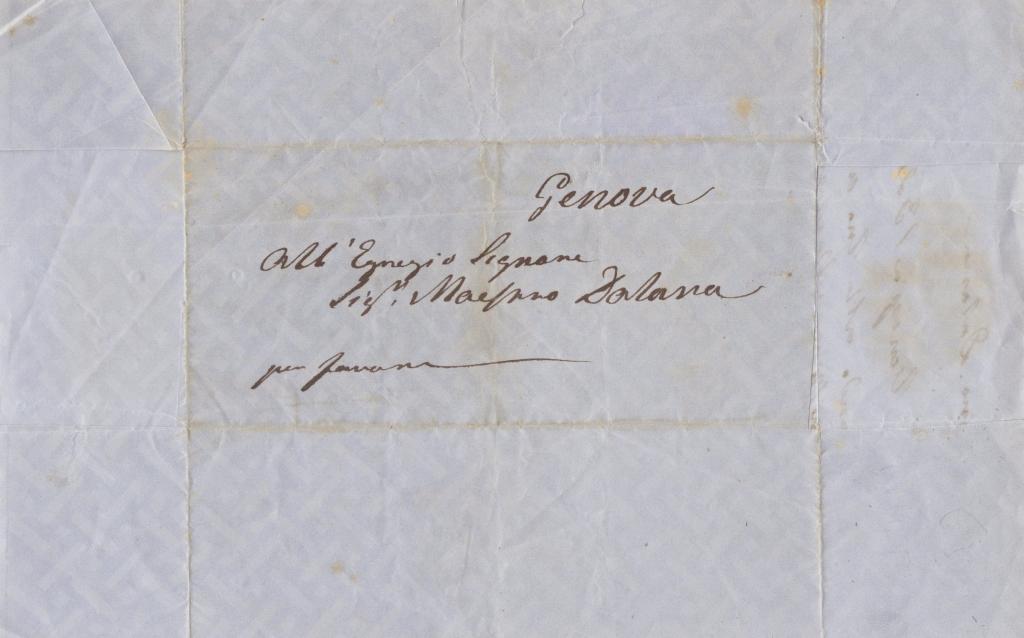 Genova
All' Egregio Signore
Sig.r Maestro
per favore